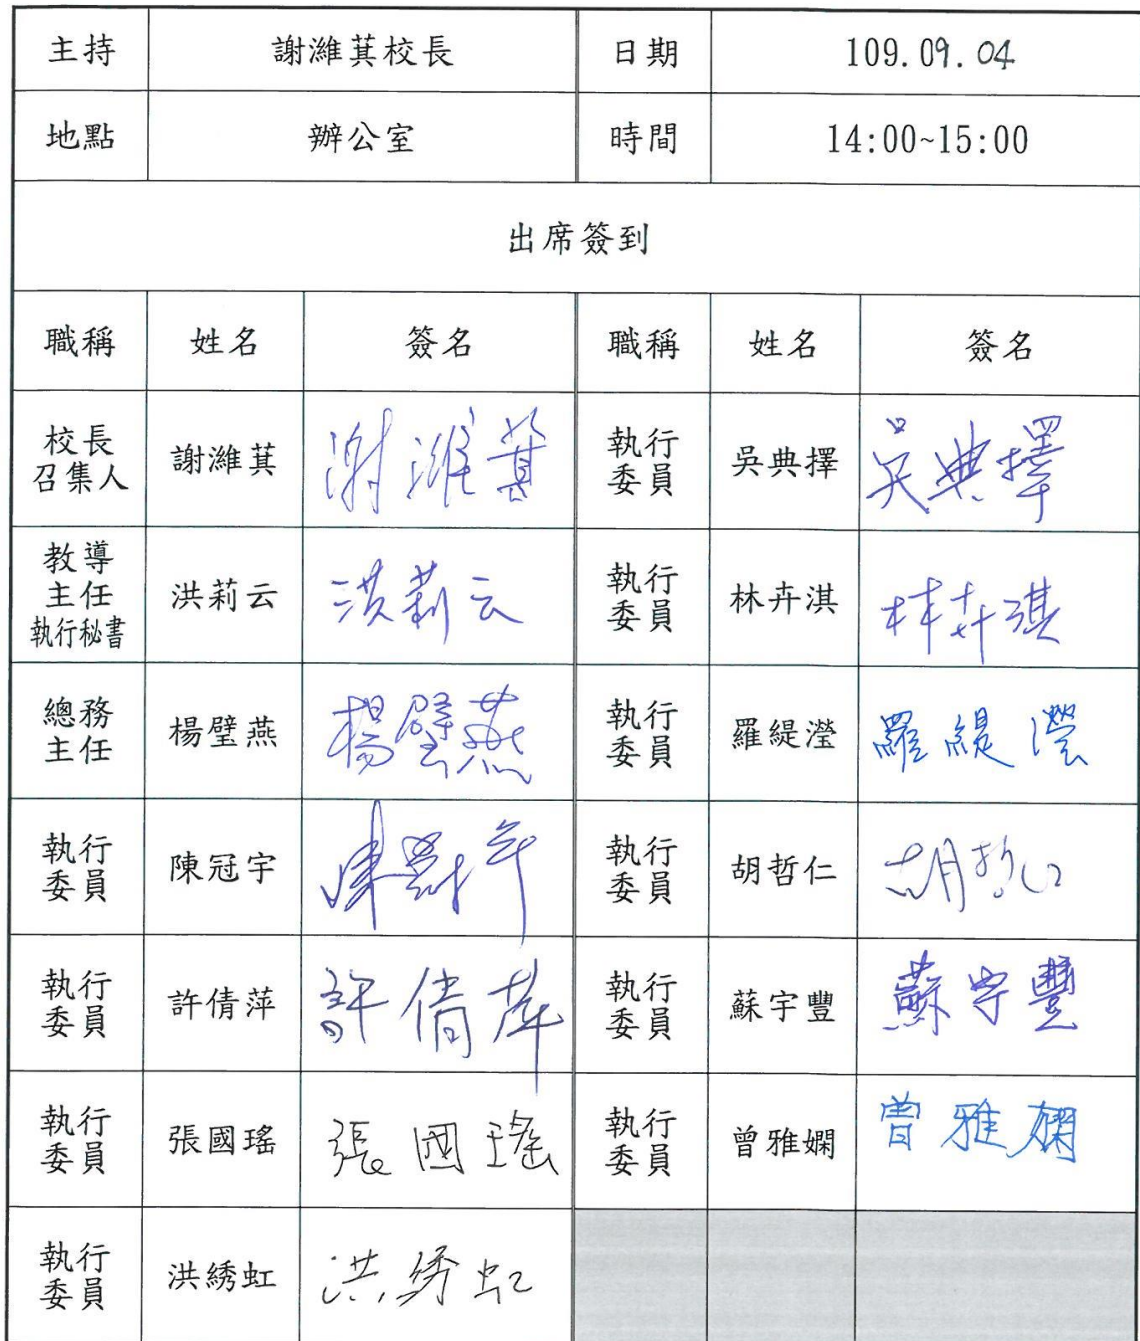 主持 謝濰萁校長 日期 109.09.04
地點 辦公室 時間 14:00~15:00
出席簽到
職稱 姓名 簽名 職稱 姓名 簽名
校長
召集人 謝濰萁 謝濰萁 執行
委員 吳典擇 吳典擇
教導
主任
執行秘書 洪莉云 洪莉云 執行
委員 林卉淇 林卉淇
總務
主任 楊璧燕 楊璧燕 執行
委員 羅緹瀅 羅緹瀅
執行
委員 陳冠宇 陳冠宇 執行
委員 胡哲仁 胡哲仁
執行
委員 許倩萍 許倩萍 執行
委員 蘇宇豐 蘇宇豐
執行
委員 張國瑤 張國瑤 執行
委員 曾雅嫻 曾雅嫻
執行
委員 洪綉虹 洪綉虹